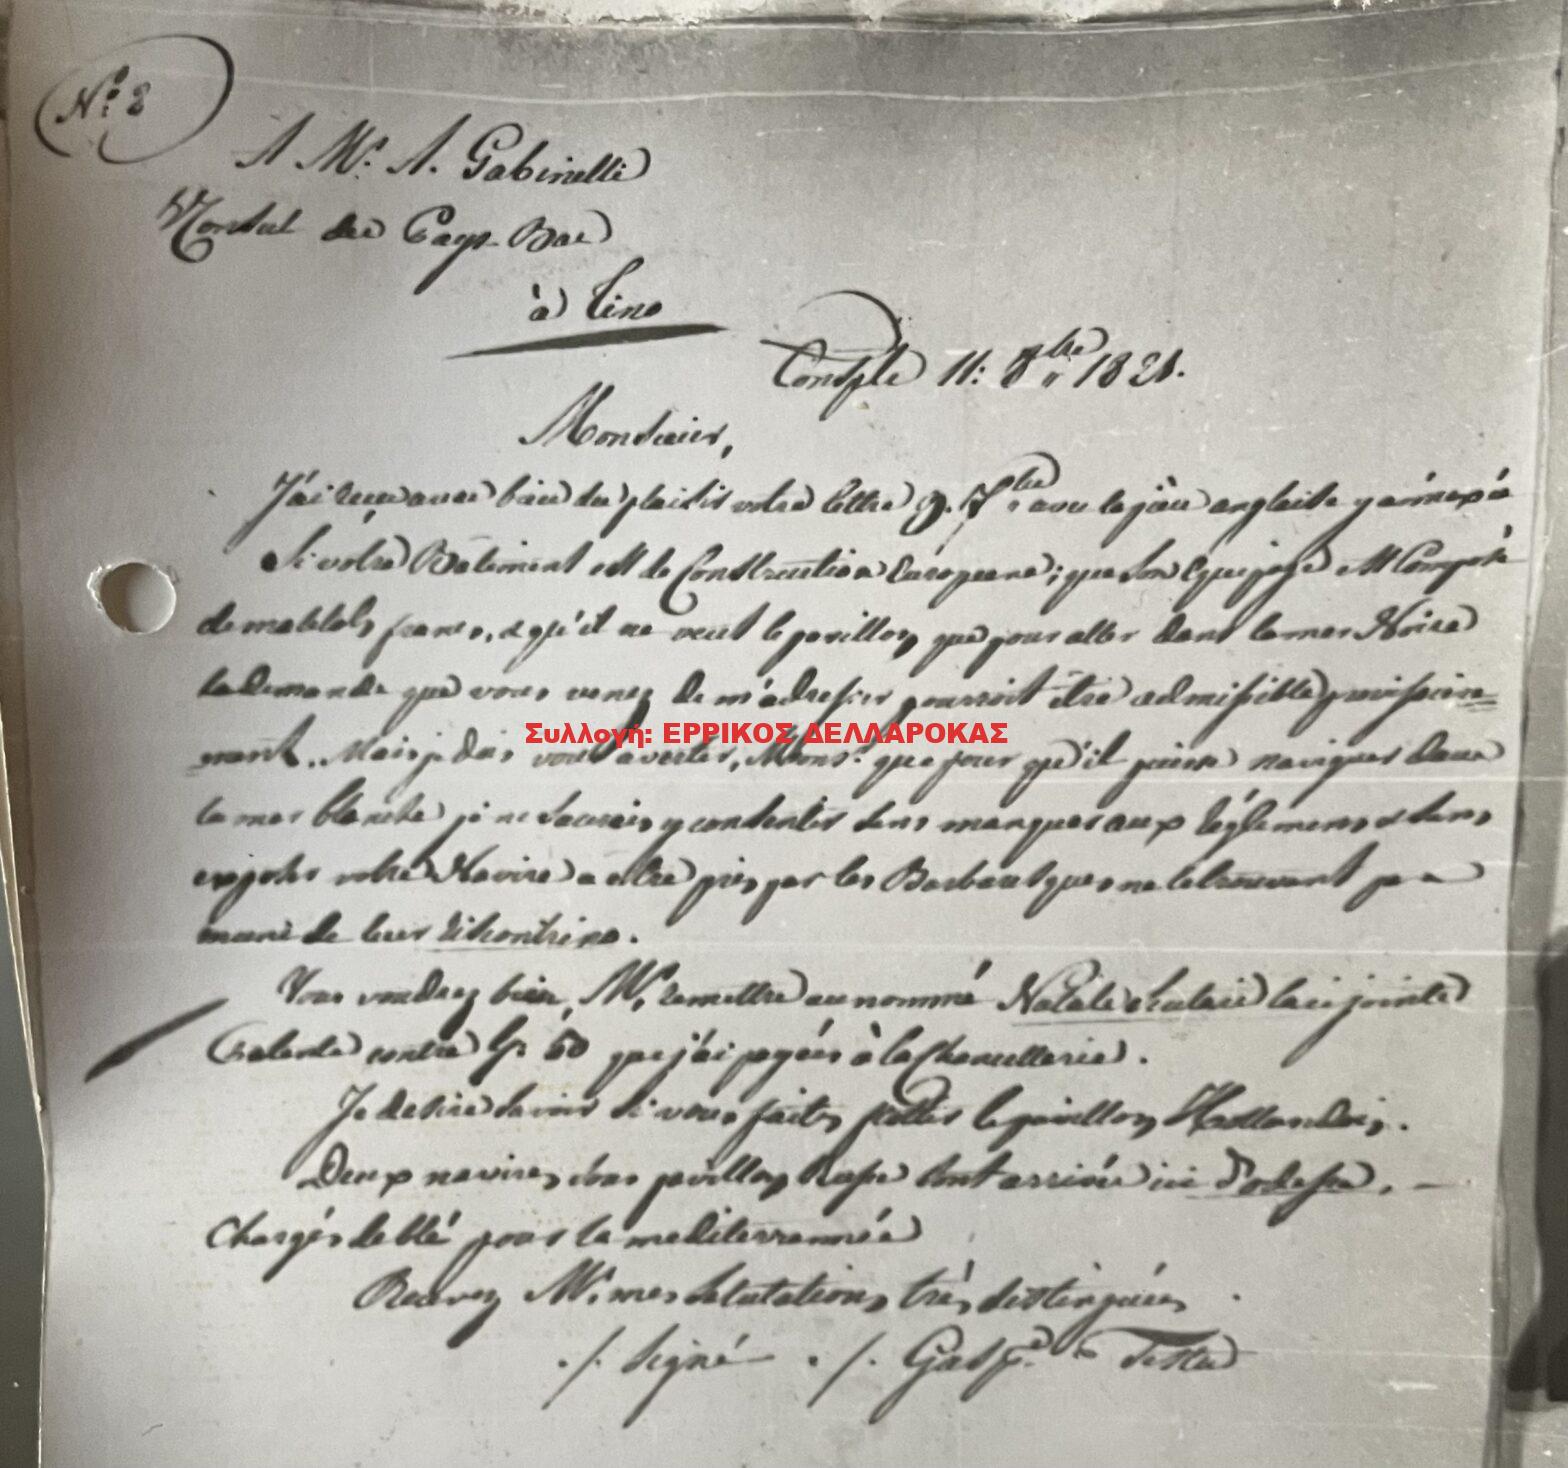 N.º 8
A Mr. A. Gabinelli
Consul des Pays-Bas
à Tino
Consple 11: 8bre 1821.
Monsieur,
J'ai reçu avec bien du plaisir votre lettre 9. 7bre avec la anglaise y annexée
Si votre Batiment est de Construction Européenne; que son équipage est Composé
de matelots francs, & qu'il ne veut le pavillon que pour aller dans la mer Noire
la demande que vous venez de m'adresser pourroit être admissible provisoire=
=ment. Mais je dois vous avertir, Monsr. que pour qu'il puisse naviguer dans
la mer blanche je ne saurais y consentir sans manquer aux réglemens & sans
exposer votre Navire a etre pris par les Barbaresques ne le trouvant pas
muni de leur riscontrino.
Vous voudrez bien, Mr, remettre au nommé Natale la ci jointe
Patente contre 60 que j'ai payées à la Chancellerie.
Je desire savoir si vous faites flotter le pavillon Hollandois.
Deux navires sous pavillon Russe sont arrivés ici d'odessa, —
Chargés de blé pour la mediterrannée
Recevez Mr. mes salutations très distinguées
./. Signé ./. Gasp.d Testa
Συλλογή: ΕΡΡΙΚΟΣ ΔΕΛΛΑΡΟΚΑΣ